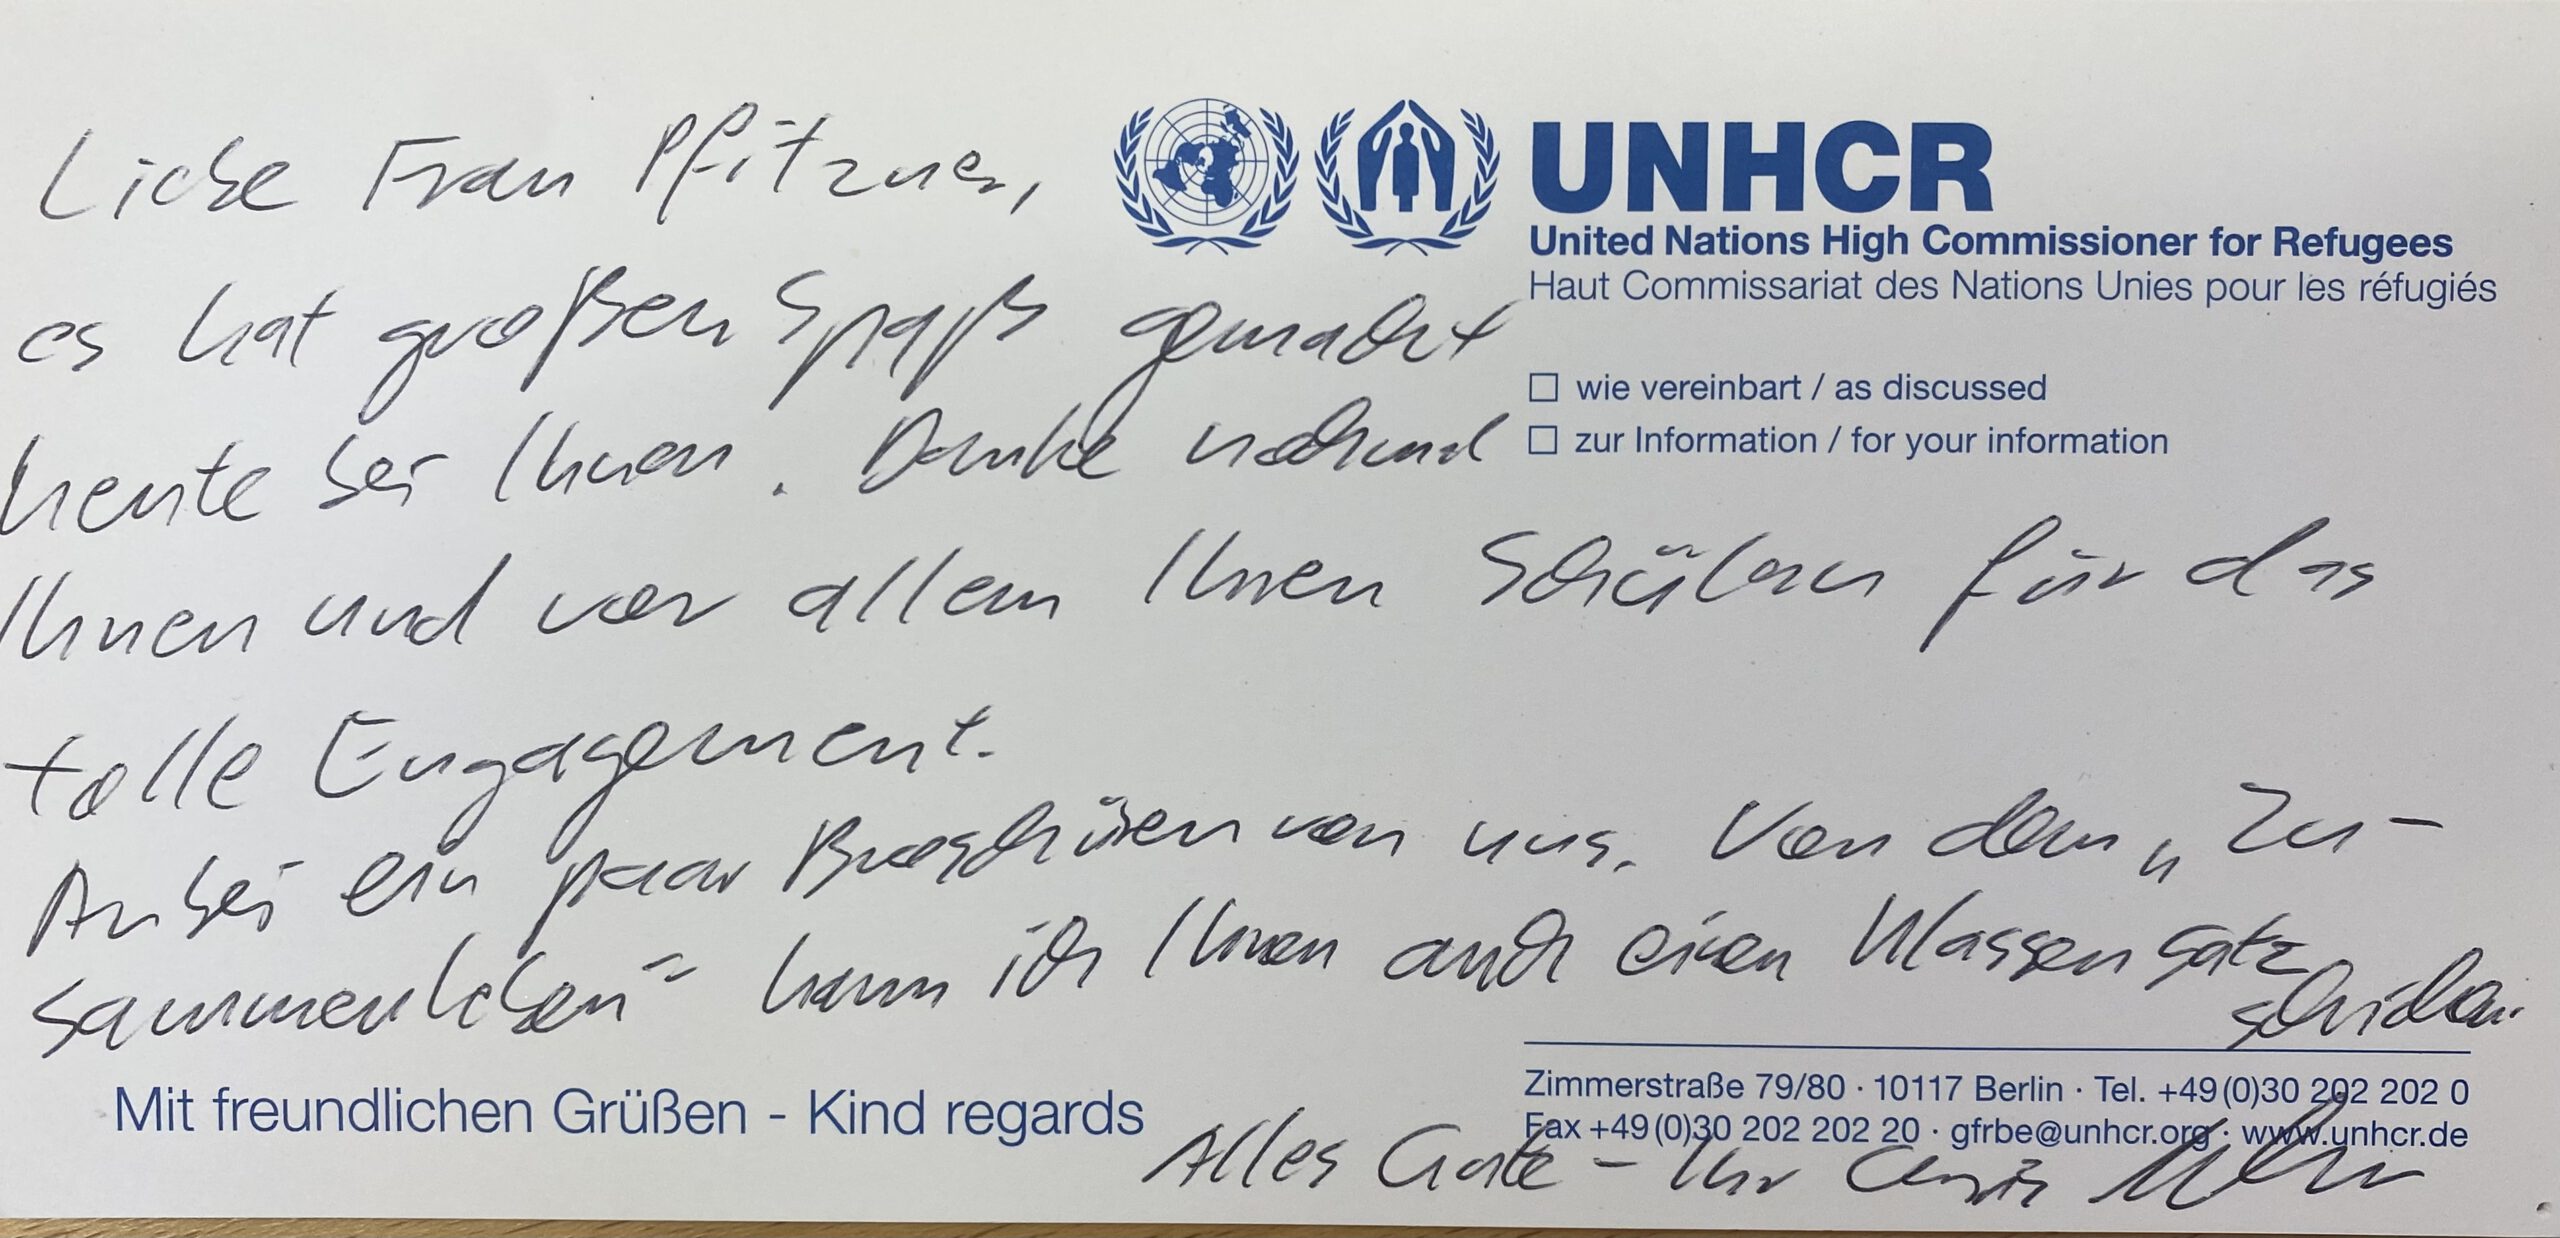 Liebe Frau Pfitzner,
UNHCR
United Nations High Commissioner for Refugees
Haut Commissariat des Nations Unies pour les réfugiés
es hat großen Spaß gemacht
☐ wie vereinbart / as discussed
☐ zur Information / for your information
heute bei Ihnen. Danke nochmal
Ihnen und vor allem Ihren Schülern für das
tolle Engagement.
Anbei ein paar Broschüren von uns. Von dem „Zu-
sammenleben“ kann ich Ihnen auch einen Klassensatz
schicken.
Mit freundlichen Grüßen - Kind regards
Zimmerstraße 79/80 · 10117 Berlin · Tel. +49(0)30 202 202 0
Fax +49(0)30 202 202 20 · gfrbe@unhcr.org · www.unhcr.de
Alles Gute – Ihr